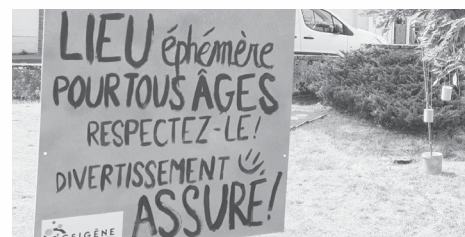 LIEU éphémère
POUR TOUS ÂGES
RESPECTEZ-LE!
DIVERTISSEMENT
ASSURÉ!